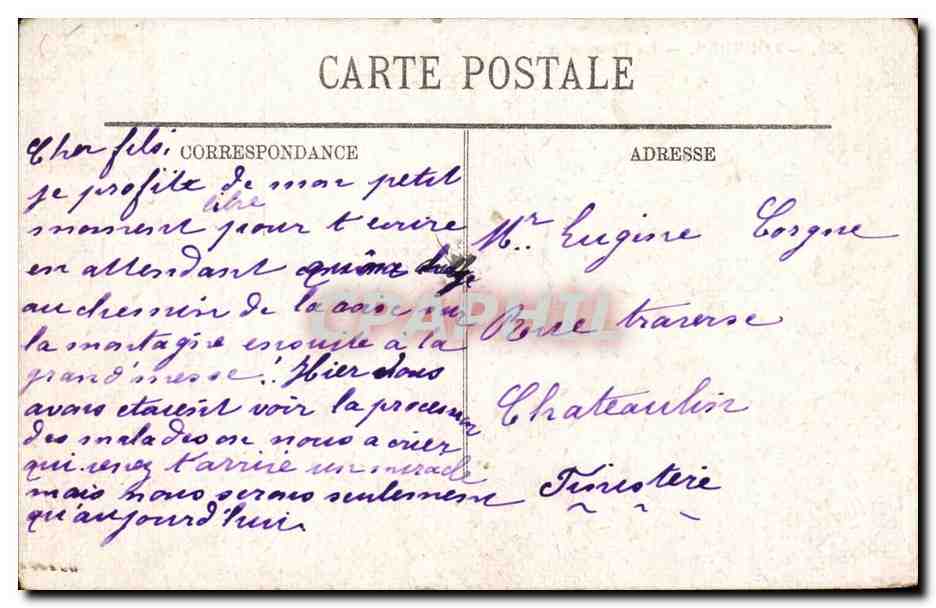 CARTE POSTALE
CORRESPONDANCE
ADRESSE
Cher fils,
je profite de mon petit
libre
moment pour t ecrire
en attendant qu'on
au chemin de la sur
la montagne ensuite a la
grand'messe! Hier nous
avons etaient voir la procession
des malades on nous a crier
qui venez t'arrivé un miracle
mais nous serons seulement
qu'aujourd'hui
Mr. Eugine Corgne
Rue traverse
Chateaulin
Finistere
CPAPHIL